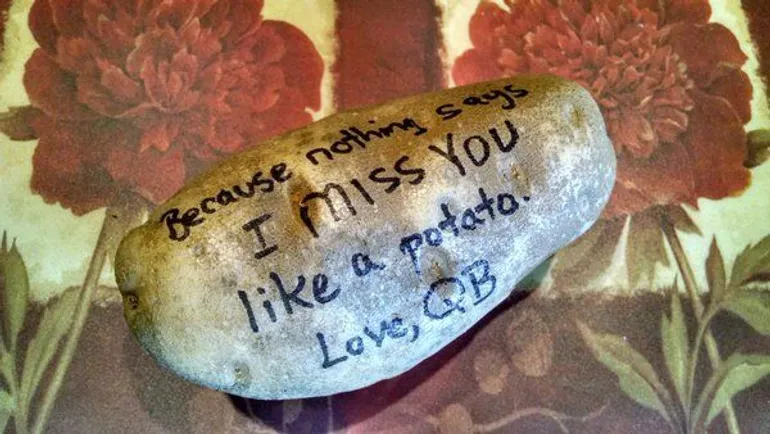 Because nothing says
I MISS YOU
like a potato.
Love, QB